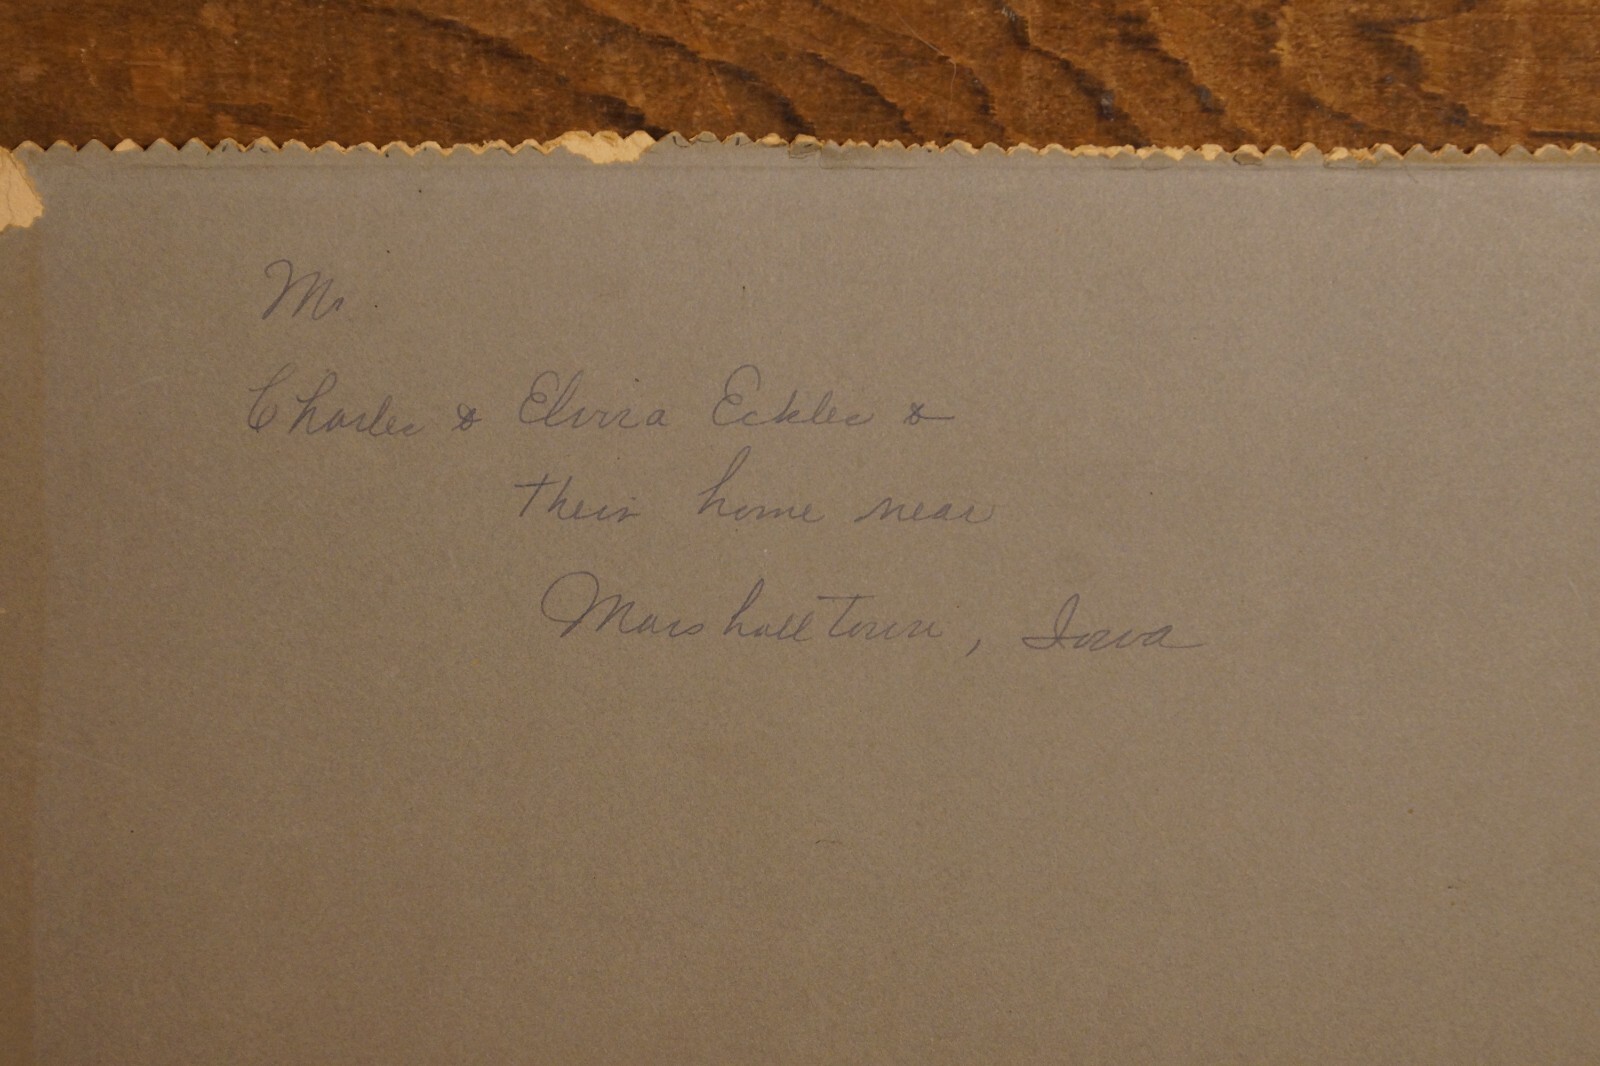 Mr.
Charles & Elvira Eckles &
their home near
Marshalltown, Iowa